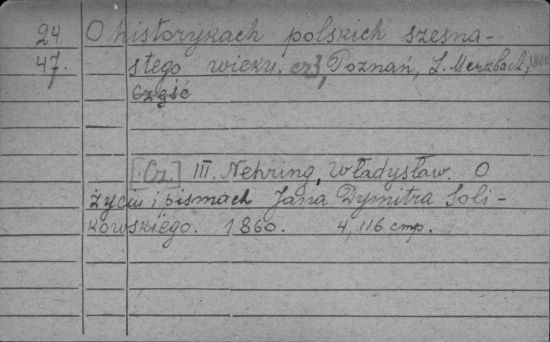 24 O historykach polskich szesna-
47. stego wieku. cz, Poznań, L. Merzbach, 1860
Część
[Cz.] III. Nehring, Władysław. O
życiu i pismach Jana Dymitra Soli-
kowskiego. 1860. 4, 116 стр.